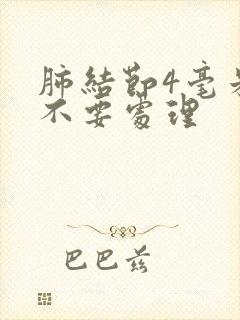 肺結節4毫
不要處理
巴巴兹